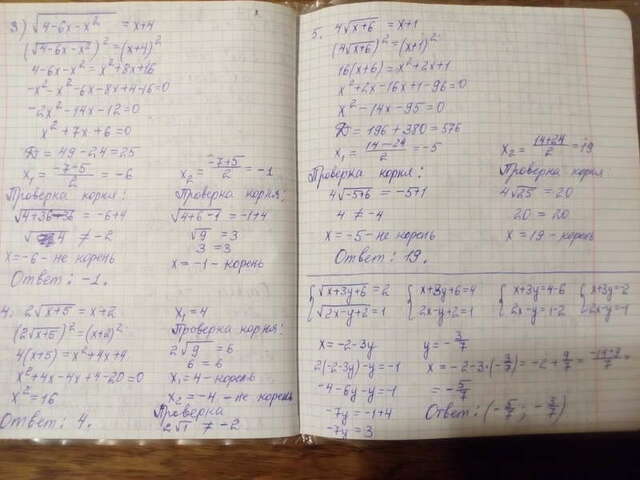 3) √4-6x-x² = x+4
(√4-6x-x²)² = (x+4)²
4-6x-x² = x²+8x+16
-x²-x²-6x-8x+4-16=0
-2x²-14x-12=0
x²+7x+6=0
D = 49-24=25
x₁ = (-7-5)/2 = -6
x₂ = (-7+5)/2 = -1
Проверка корня:
√4+36-36 = -6+4
4 ≠ -2
x=-6 - не корень
Проверка корня:
√4+6-1 = -1+4
√9 = 3
3 = 3
x = -1 - корень
Ответ: -1.
4. 2√x+5 = x+2
(2√x+5)² = (x+2)²
4(x+5) = x²+4x+4
x²+4x-4x+4-20=0
x²=16
Ответ: 4.
x₁ = 4
Проверка корня:
2√9 = 6
6 = 6
x₁=4 - корень
x₂ = -4 - не корень
Проверка
2√1 ≠ -2
5. 4√x+6 = x+1
(4√x+6)² = (x+1)²
16(x+6) = x²+2x+1
x²+2x-16x+1-96=0
x²-14x-95=0
D = 196+380=576
x₁ = (14-24)/2 = -5
x₂ = (14+24)/2 = 19
Проверка корня:
4√-5+6 = -5+1
4 ≠ -4
x = -5 - не корень
Проверка корня
4√25 = 20
20 = 20
x = 19 - корень
Ответ: 19.
{√x+3y+6 = 2
√2x-y+2 = 1
{x+3y+6=4
2x-y+2=1
{x+3y=4-6
2x-y=1-2
{x+3y=-2
2x-y=-1
x = -2-3y
2(-2-3y)-y=-1
-4-6y-y=-1
-7y=-1+4
-7y=3
y = -3/7
x = -2-3·(-3/7) = -2+9/7 =
= -5/7
Ответ: (-5/7; -3/7)